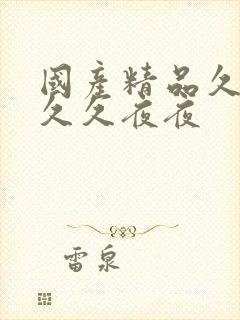 國產精品久
久久夜夜
雷泉